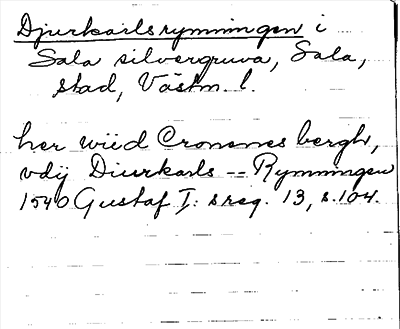 Djurkarlsrymningen i
Sala silvergruva, Sala,
stad, Västm. l.
her wiid Cronsnes bergh,
vdij Diurkarls -- Rymningen
1540 Gustaf I: s reg. 13, s. 104.